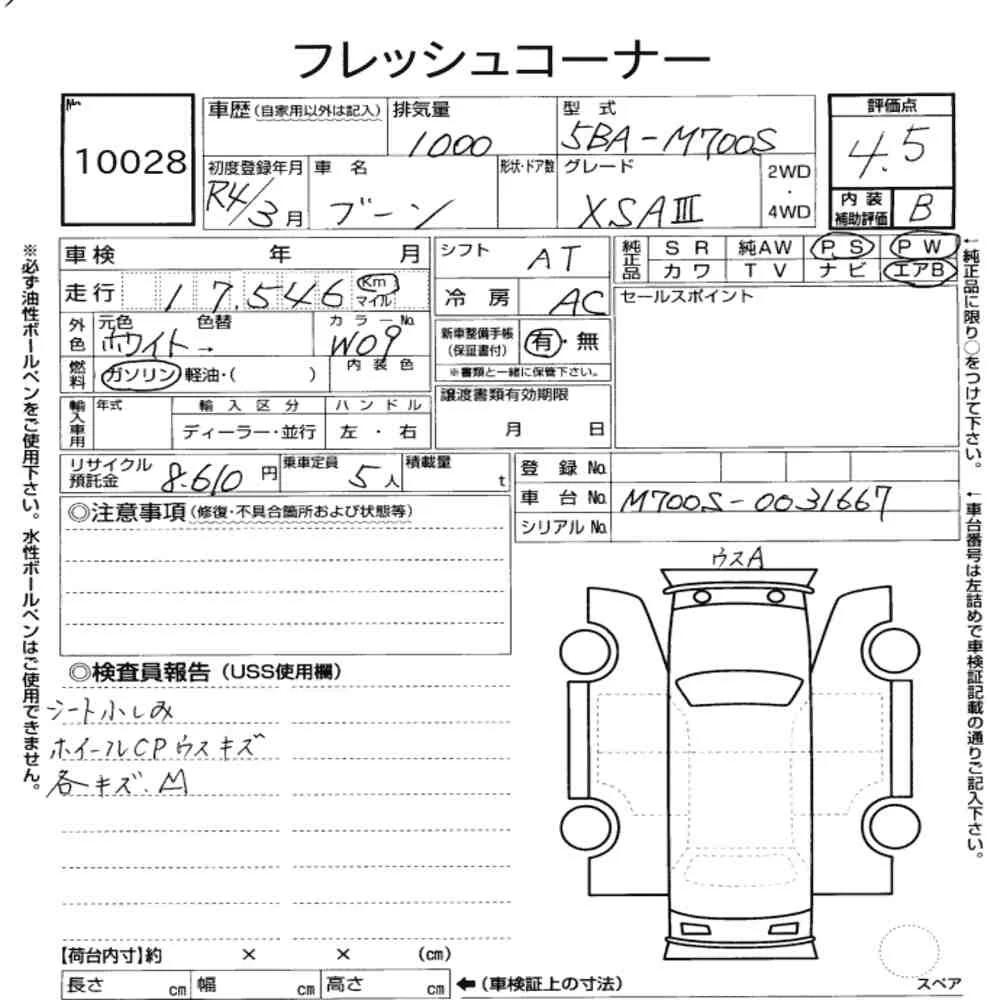 フレッシュコーナー
No.
10028
車歴(自家用以外は記入)
排気量
1000
型 式
5BA-M700S
評価点
4.5
初度登録年月
R4/3月
車 名
ブーン
形状・ドア数
グレード
XSAⅢ
2WD
・
4WD
内 装
補助評価
B
車検 年 月
シフト
AT
純正品
SR 純AW PS PW
カワ TV ナビ エアB
走行 17.546 Km
マイル
冷 房
AC
セールスポイント
外色
元色 色替
ホワイト→
カラーNo.
W09
新車整備手帳
(保証書付)
有・無
※書類と一緒に保管下さい。
燃料
ガソリン 軽油・( )
内 装 色
譲渡書類有効期限
月 日
輸入車用
年式
輸 入 区 分
ハ ン ド ル
ディーラー・並行
左 ・ 右
リサイクル
預託金
8.610円
乗車定員
5人
積載量
t
登 録 No.
車 台 No.
M700S-0031667
シリアル No.
◎注意事項(修復・不具合箇所および状態等)
ウスA
◎検査員報告(USS使用欄)
シート小しみ
ホイールCPウスキズ
各キズ.M
【荷台内寸】約 × × (cm)
長さ cm 幅 cm 高さ cm
←(車検証上の寸法)
スペア
※必ず油性ボールペンをご使用下さい。水性ボールペンはご使用できません。
←純正品に限り○をつけて下さい。
←車台番号は左詰めで車検証記載の通りご記入下さい。